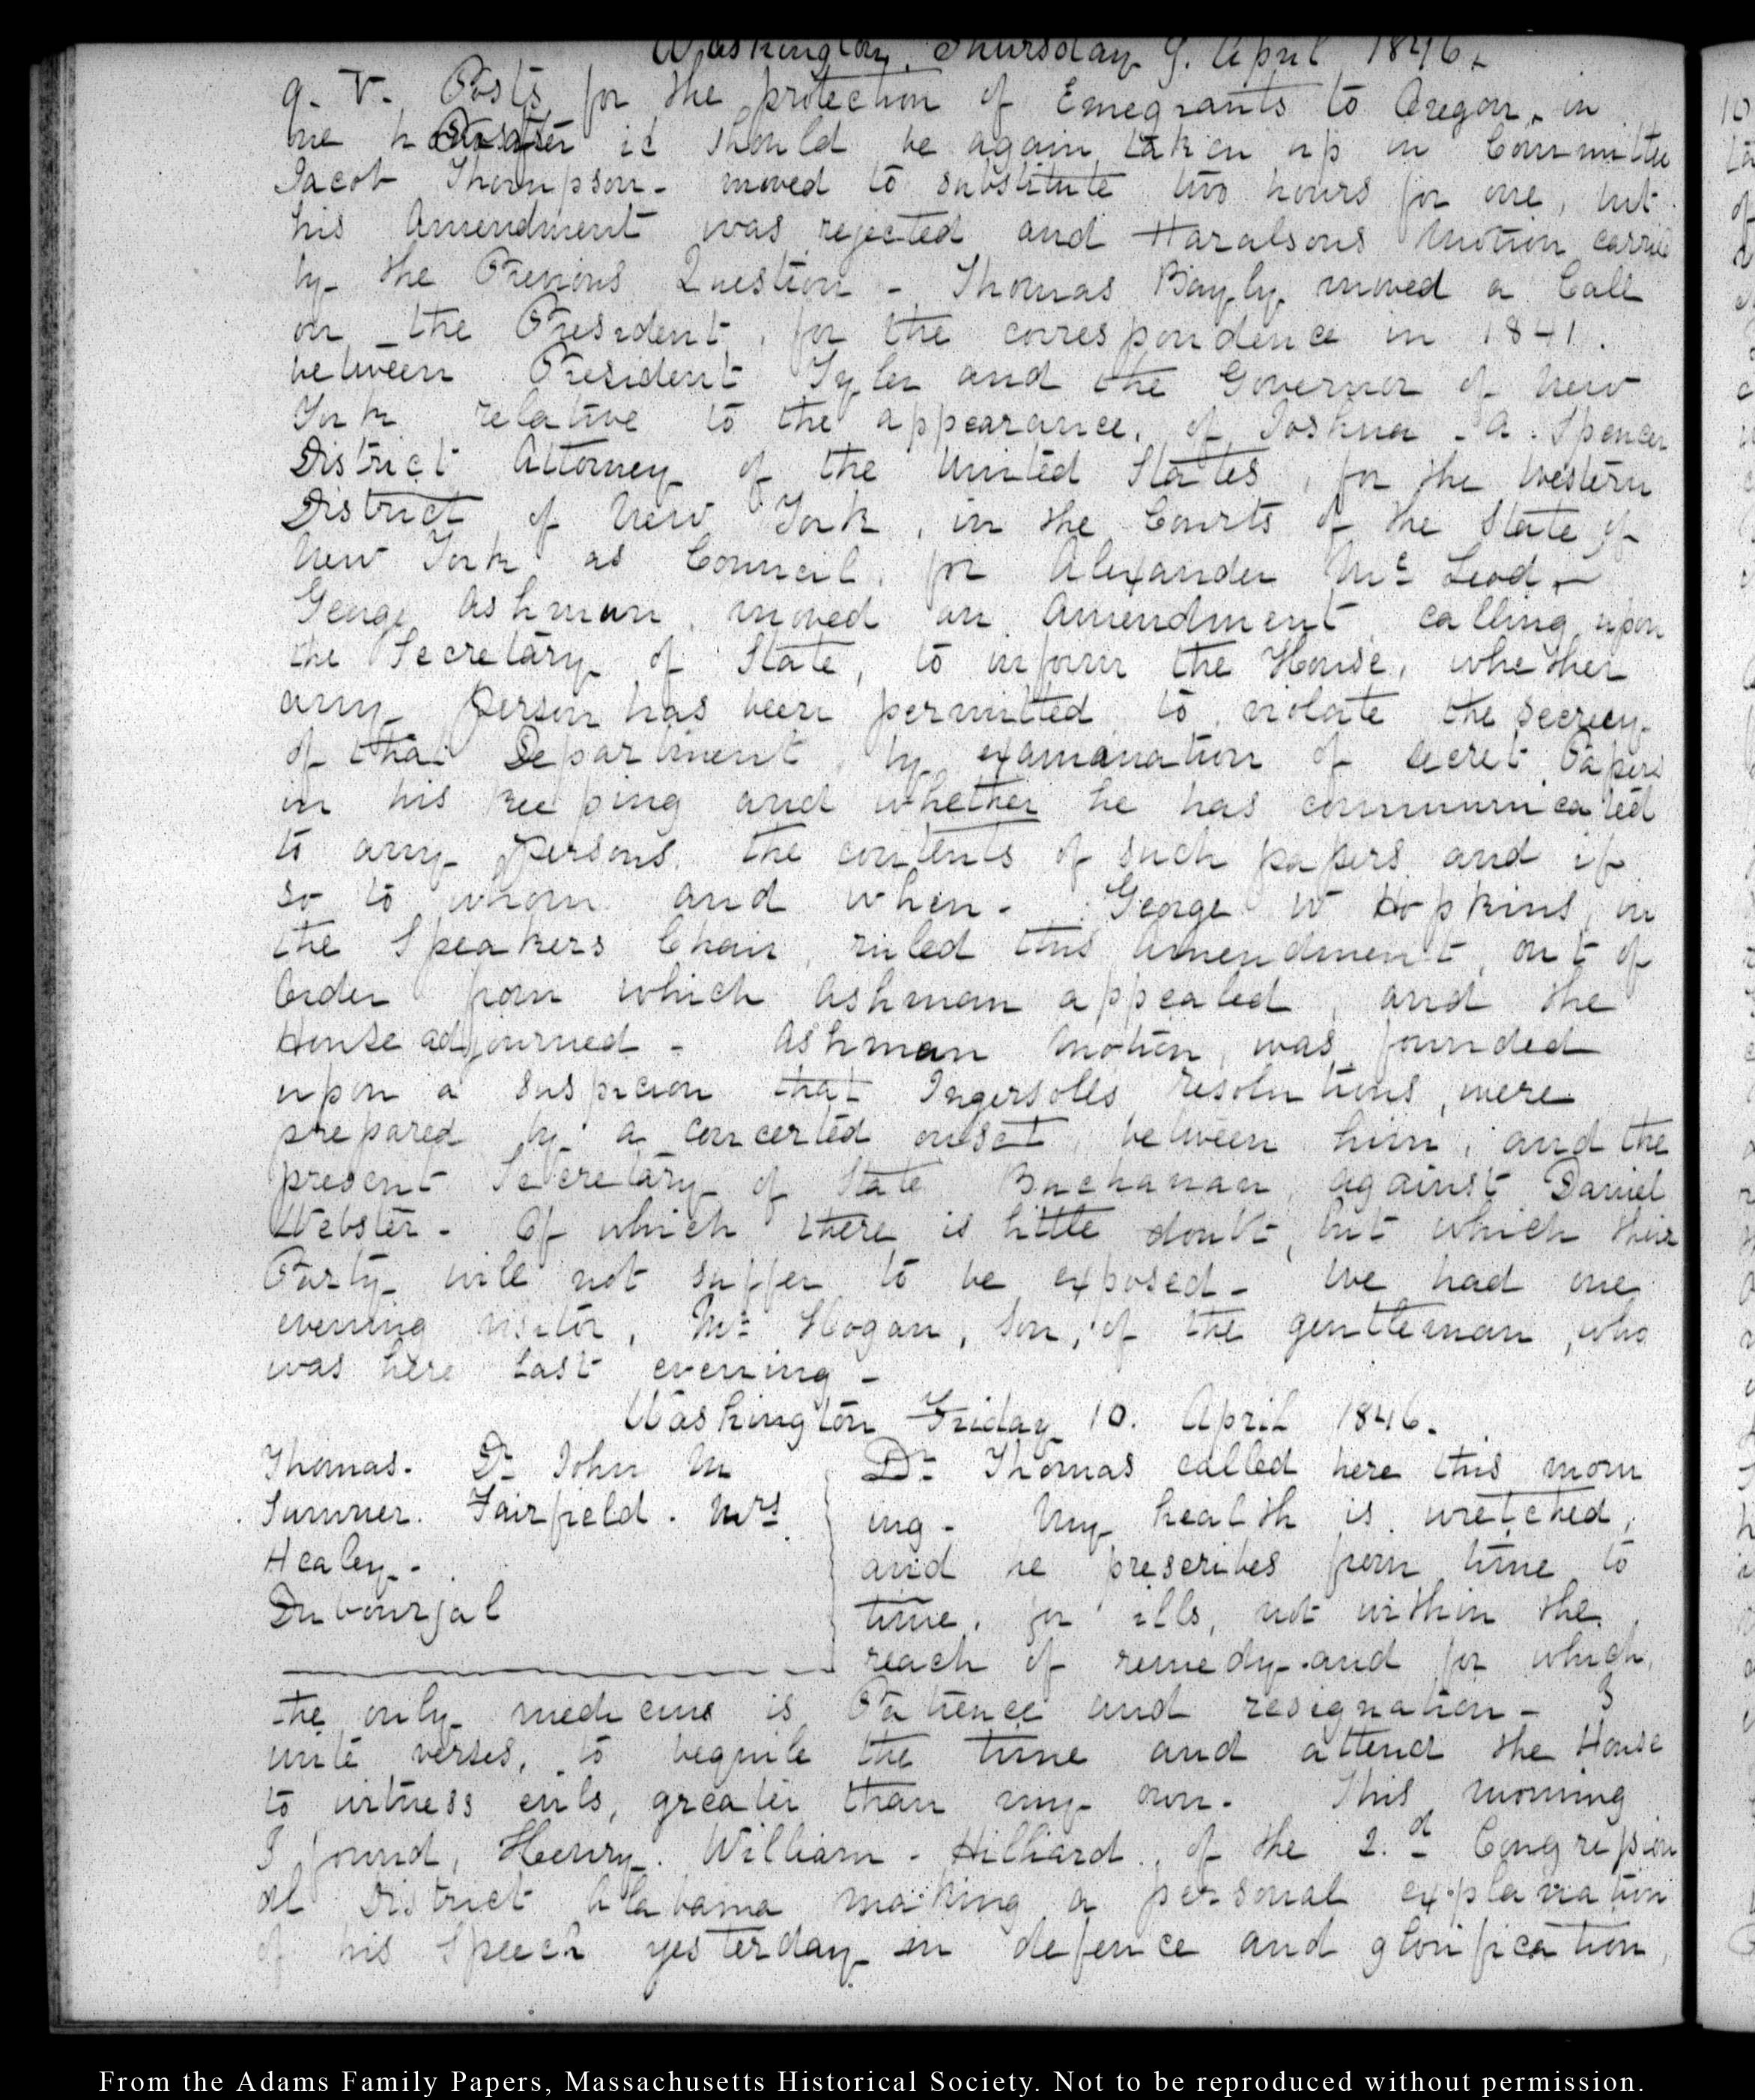 Washington, Thursday 9. April 1846.
9. V. Posts, for the protection of Emegrants to Oregon, in
one hour after it should be again taken up in Committee
Jacob Thompson - moved to substitute two hours for one, but
his Amendment was rejected and Haralsons Motion carried
by the Previous Question - Thomas Bayly moved a Call
on the President, for the correspondence in 1841.
between President Tyler and the Governor of New
York relative to the appearance, of Joshua - A. Spencer
District Attorney of the United States, for the Western
District of New York, in the Courts of the State of
New York as Council, for Alexander Mc Leod -
George Ashmun, moved an Amendment calling upon
the Secretary of State, to inform the House, whether
any person has been permitted to violate the secrecy
of that Department, by examanation of secret Papers
in his keeping and whether he has communicated
to any persons, the contents of such papers and if
so to whom and when - George W Hopkins, in
the Speakers Chair, ruled this Amendment, out of
Order from which Ashman appealed, and the
House adjourned - Ashman Motion, was founded
upon a suspicion that Ingersolls resolutions, were
prepared by a concerted onset, between him, and the
present Secretary of State Buchanan, against Daniel
Webster - Of which there is little doubt, but which their
Party will not suffer to be exposed - We had one
evening visitor, Mr Hogan, son, of the gentleman, who
was here last evening -
Washington Friday 10. April 1846.
Thomas. Dr John M
Sumner. Fairfield. Mrs
Healey -
Dubourjal
Dr Thomas called here this morn
ing - My health is wretched,
and he prescribes from time to
time, for ills, not within the
reach of remedy - and for which,
the only medicine is Patience and resignation - I
write verses, to beguile the time and attend the House
to witness evils, greater than my own. This morning
I found, Henry. William - Hilliard, of the 2.d Congression
al District Alabama making a personal explanation
of his Speech yesterday in defence and glorification,
From the Adams Family Papers, Massachusetts Historical Society. Not to be reproduced without permission.